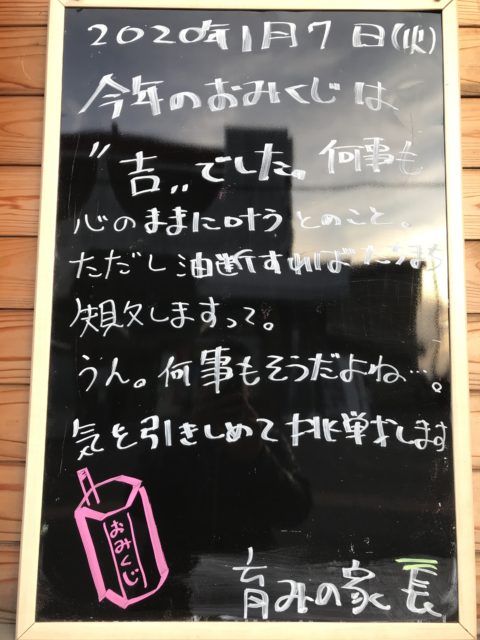 2020年1月7日(火)
今年のおみくじは
〝吉〟でした。何事も
心のままに叶うとのこと。
ただし油断すればたちまち
失敗しますって。
うん。何事もそうだよね…。
気を引きしめて挑戦します
おみくじ
育みの家 長